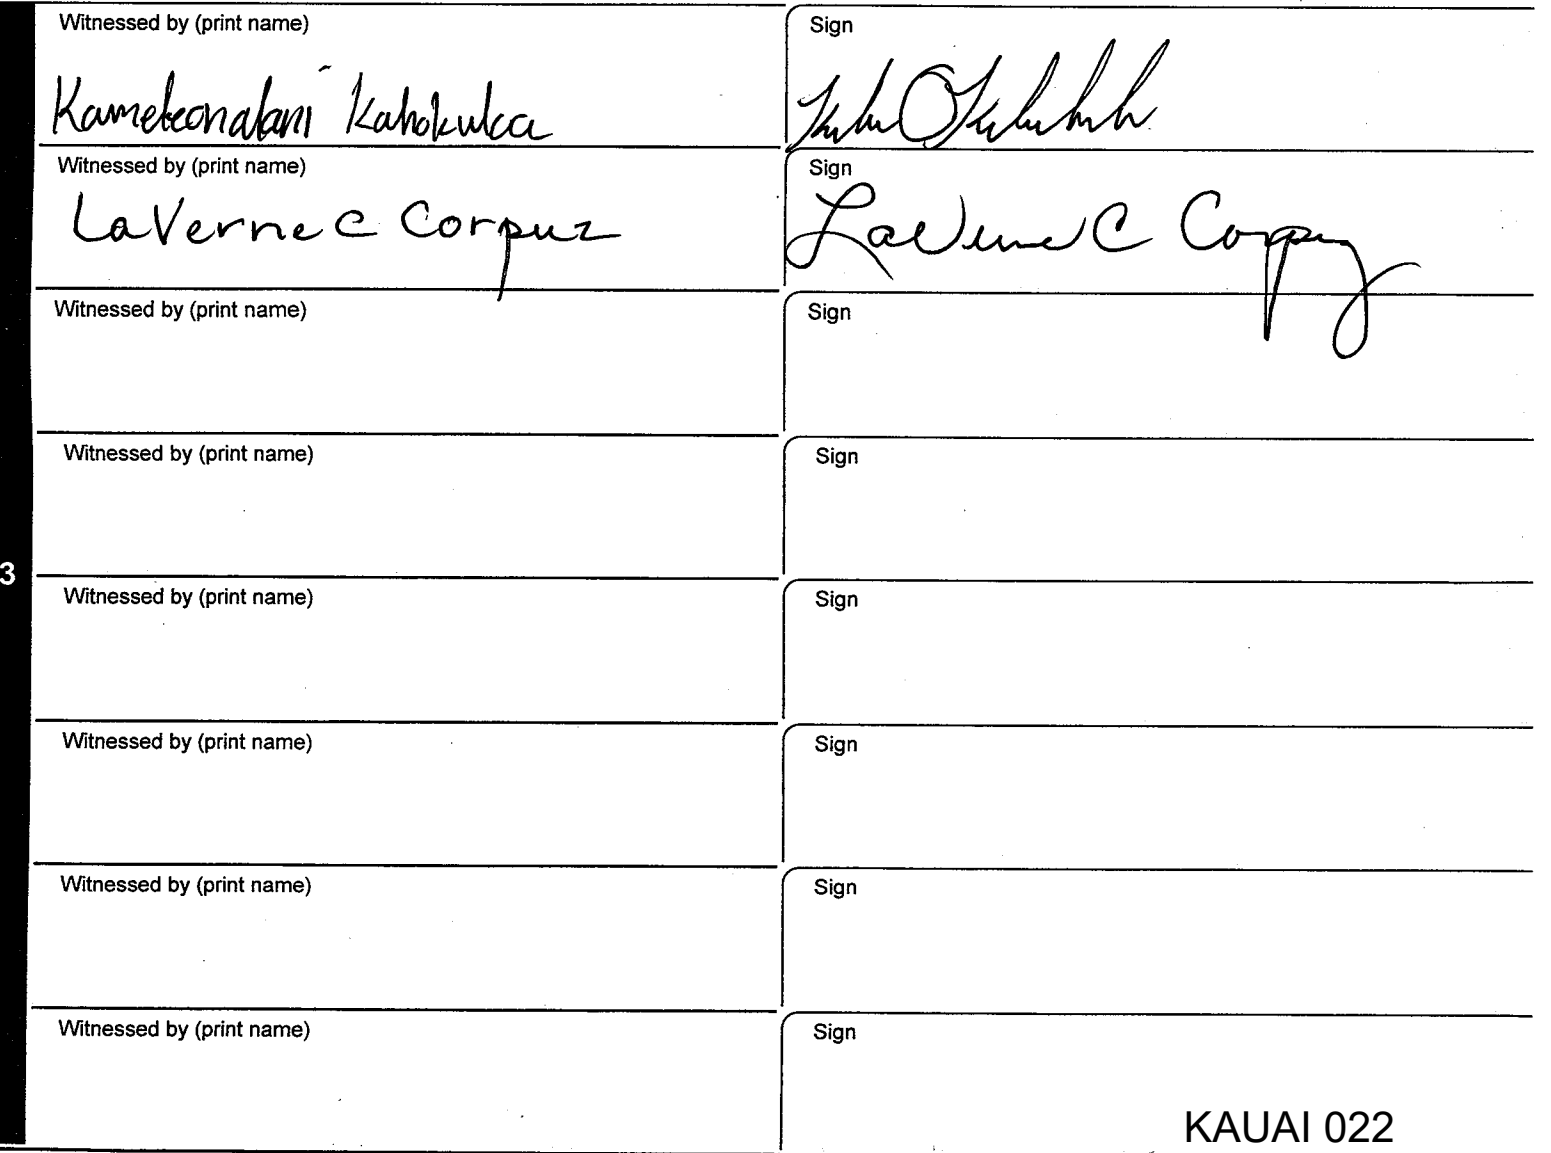 Witnessed by (print name) Sign
Kahokulca
Witnessed by (print name) Sign
LaVerne C Corpuz LaVerne C Corpuz
Witnessed by (print name) Sign
Witnessed by (print name) Sign
3
Witnessed by (print name) Sign
Witnessed by (print name) Sign
Witnessed by (print name) Sign
Witnessed by (print name) Sign
KAUAI 022